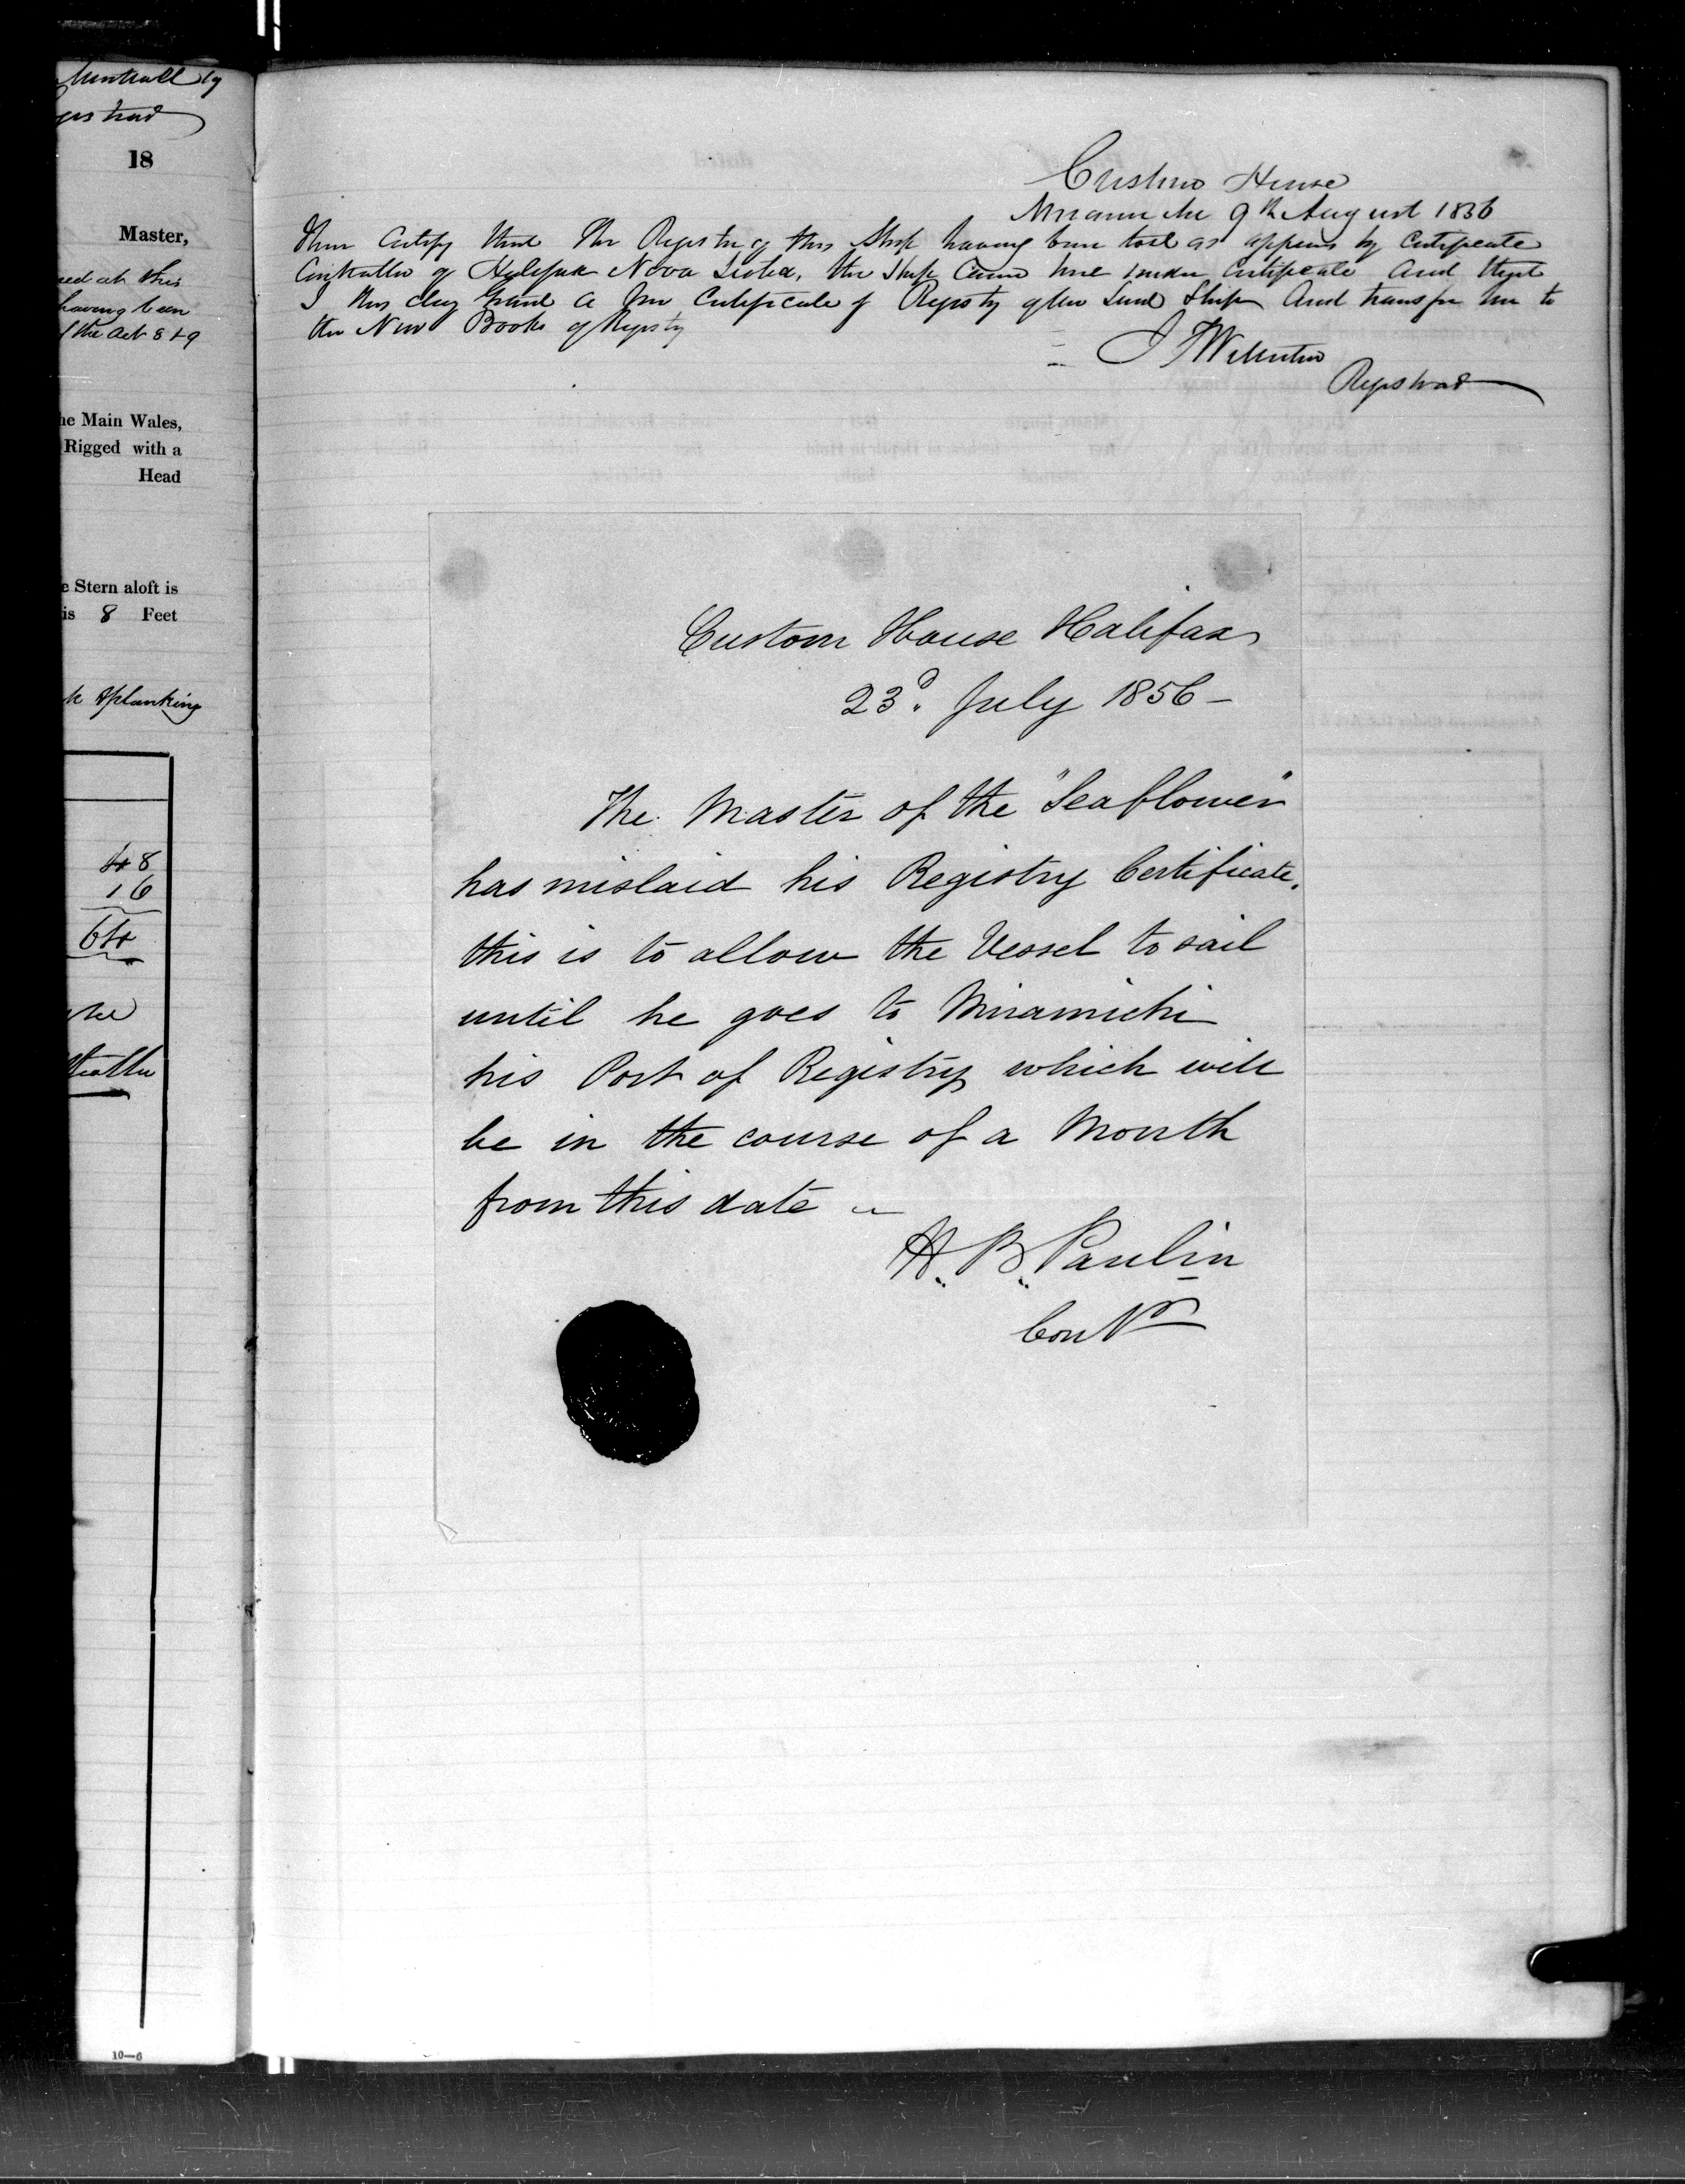 by
18
Master,
at this
having been
the act 8 & 9
he Main Wales,
Rigged with a
Head
e Stern aloft is
is 8 Feet
& planking
48
16
64
10—6
Custom House
Miramichi 9th August 1856
I here Certify that the Register of this Ship having been lost as appears by Certificate
Controller of Halifax Nova Scotia, the Ship Came here under Certificate and that
I this day Grant a new Certificate of Registry of the Said Ship And transfer her to
the New Books of Registry
Registrar
Custom House Halifax
23d. July 1856 –
The Master of the "Seaflower"
has mislaid his Registry Certificate.
this is to allow the Vessel to sail
until he goes to Miramichi
his Port of Registry which will
be in the course of a Month
from this date –
H. B. Paulin
Contr